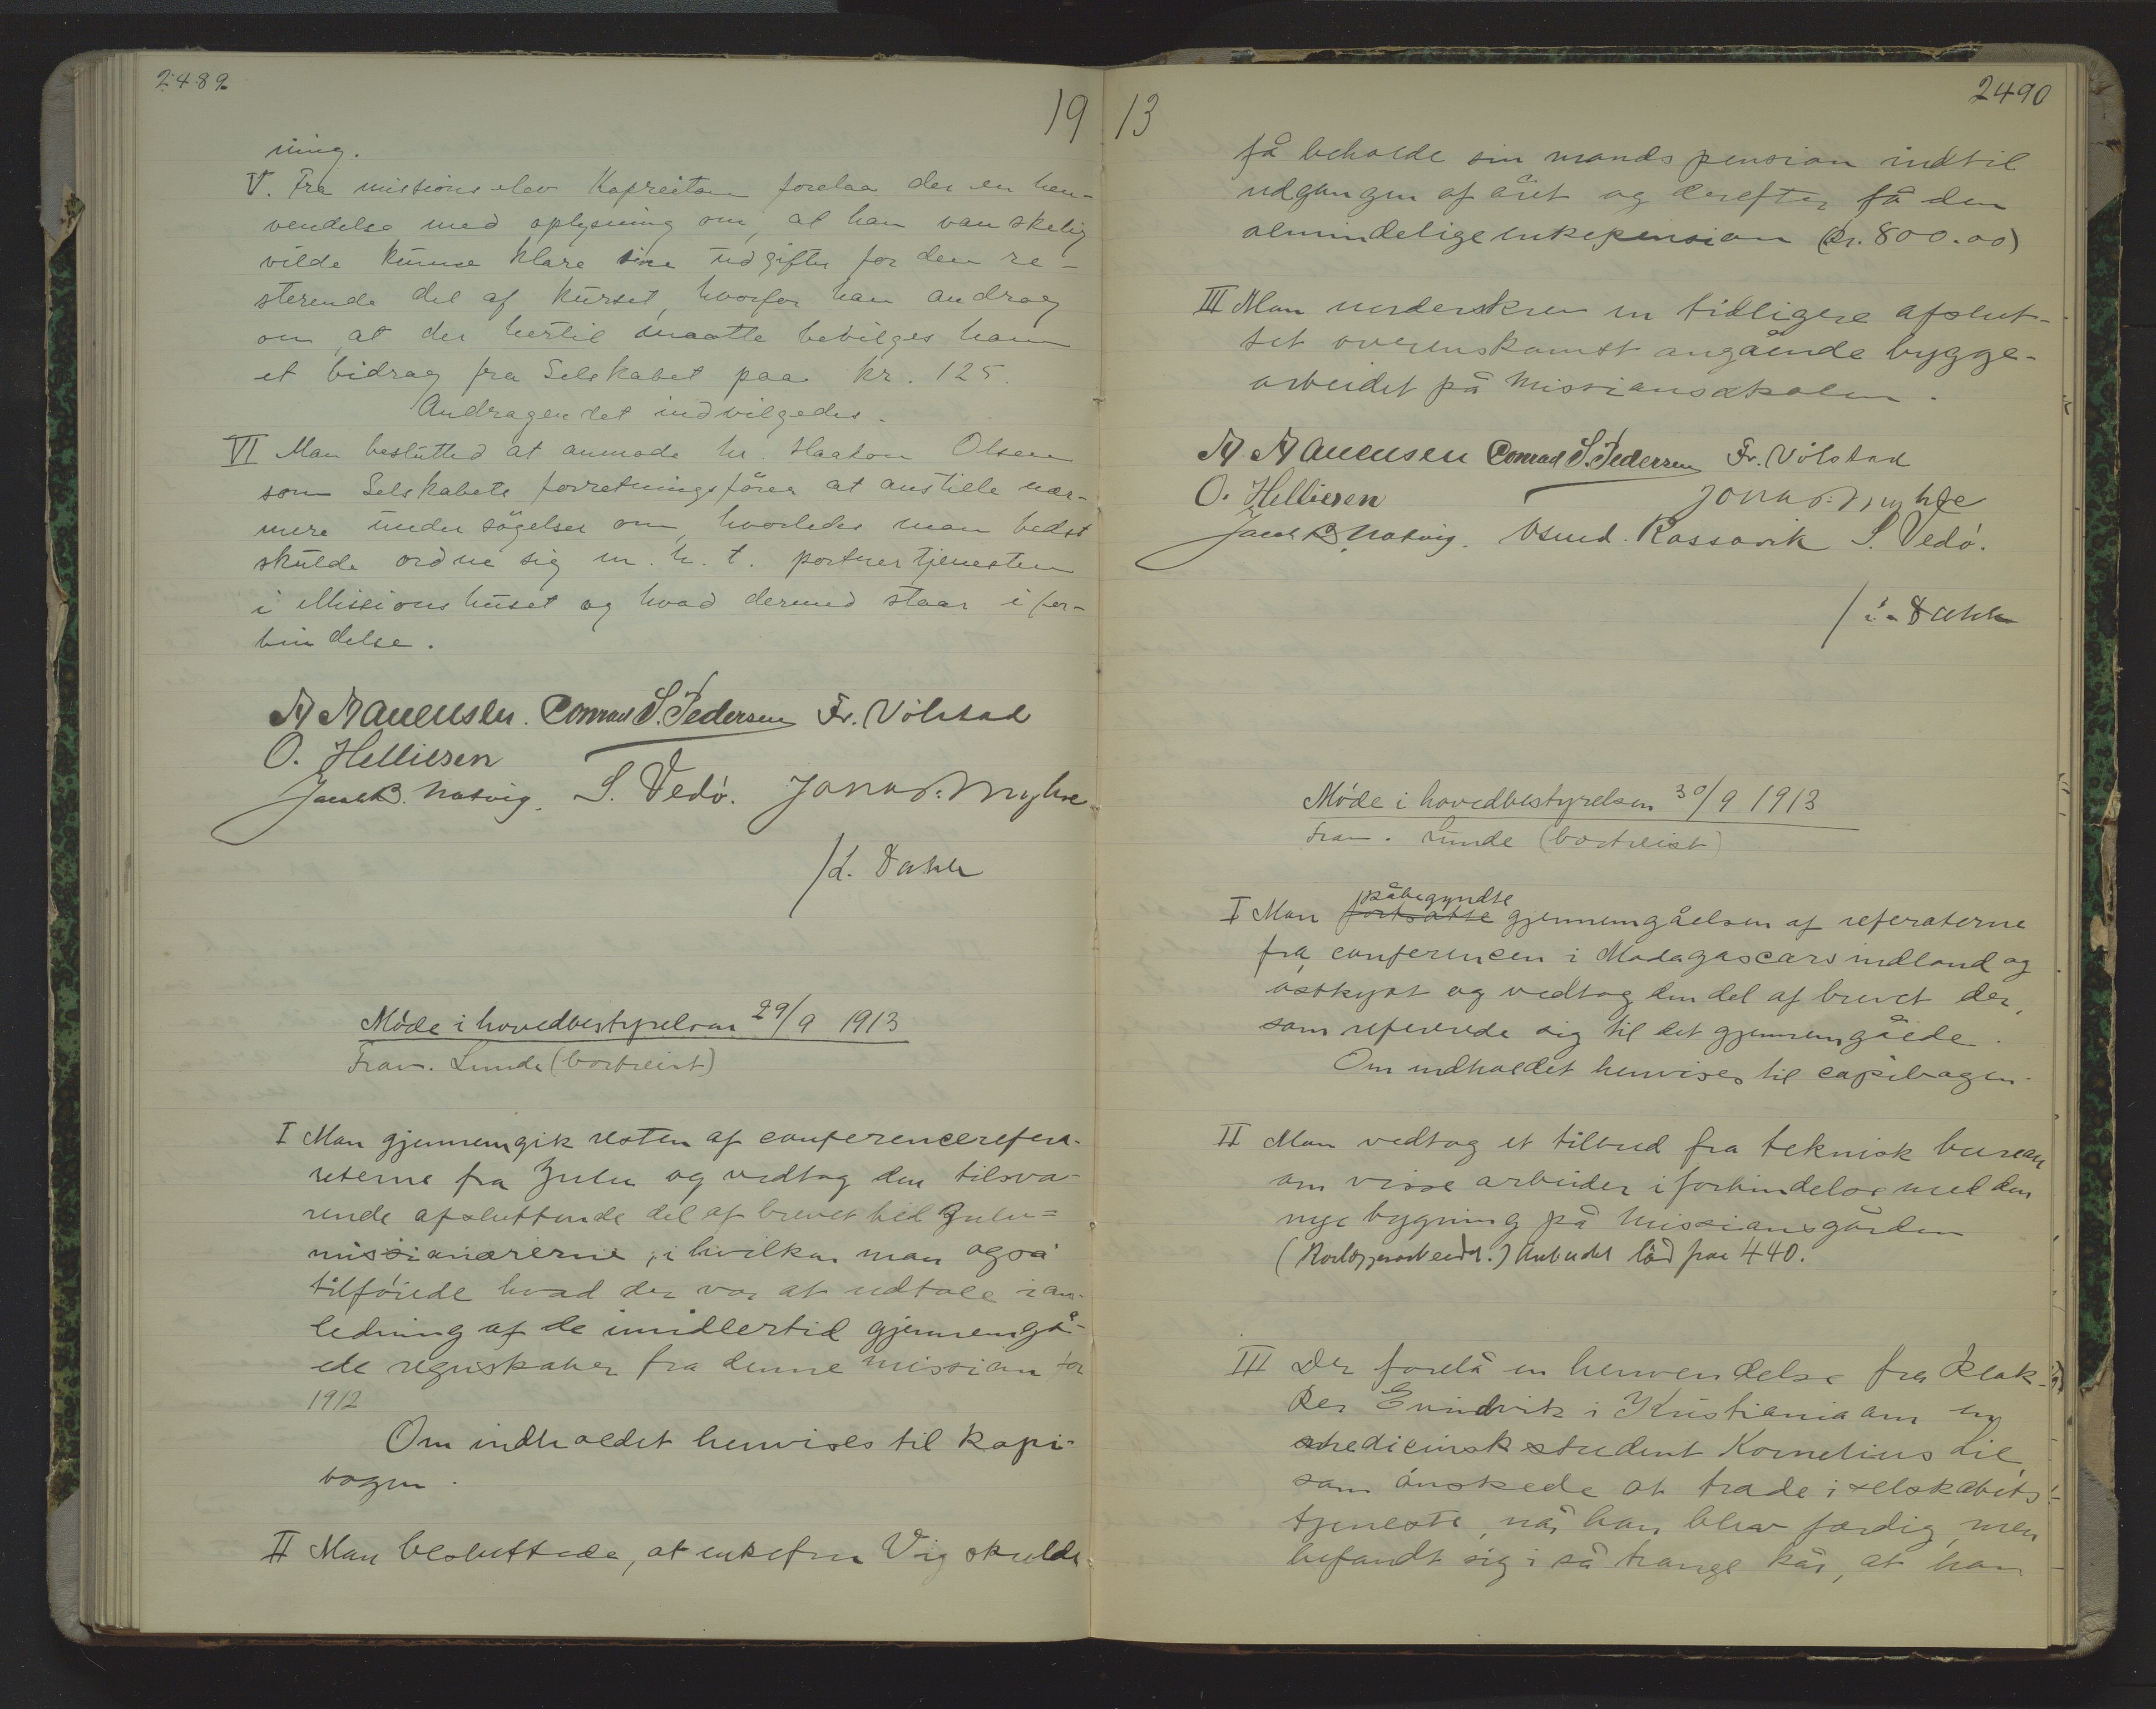 2489
19
ning.
V. Fra missionselev Kapreitan forelaa der en hen-
vendelse med oplysning om, at han vanskelig
vilde kunne klare sine udgifter for den re-
sterende del af kurset, hvorfor han androg
om at der hertil maatte bevilges ham
et bidrag fra Selskabet paa kr. 125.
Andragendet indvilgedes.
VI Man beslutted at anmode hr. Haakon Olsen
som Selskabets forretningsfører at anstille nær-
mere undersøgelser om, hvorledes man bedst
skulde ordne sig m. h. t. portnertjenesten
i Missionshuset og hvad dermed staar i for-
bindelse.
A Aanensen. Conrad S. Pedersen Fr. Vølstad
O. Helliesen
Jacob B. Natvig. S. Vedø. Jonas. Myhre
/L. Dahle
Møde i hovedbestyrelsen 29/9 1913
Frav. Lunde (bortreist)
I Man gjennemgik resten af conferencerefera-
reterne fra Zulu og vedtog den tilsva-
rende afsluttende del af brevet til Zulu=
missionærerne, i hvilken man også
tilføiede hvad der var at udtale i an-
ledning af de imidlertid gjennemgå-
ede regnskaber fra denne mission for
1912
Om indholdet henvises til kopi-
bogen.
II Man besluttede, at enkefru Vig skulde
13
2490
få beholde sin mands pension indtil
udgangen af året og derefter få den
almindelige enkepension (Kr. 800.00)
III Man underskrev en tidligere afslut-
tet overenskomst angående bygge-
arbeidet på Missionsskolen.
A Aanensen Conrad S. Pedersen Fr. Vølstad
O. Helliesen Jonas. Myhre
Jacob B. Natvig. Osmd. Rossavik S. Vedø.
/L. Dahle
Møde i hovedbestyrelsen 30/9 1913
Frav. Lunde (bortreist)
påbegyndte
I Man fortsatte gjennemgåelsen af referaterne
fra conferencen i Madagascars indland og
østkyst og vedtog den del af brevet der,
som refererede sig til det gjennemgåede.
Om indholdet henvises til copibogen.
II Man vedtog et tilbud fra teknisk bureau
om visse arbeider i forbindelse med den
nye bygning på Missionsgården
(Rørlæggerarbeidet.) Anbudet lød paa 440.
III Der forelå en henvendelse fra Klok-
ker Evindvik i Kristiania om en
medicinsk student Kornelius Lie,
som ønskede at træde i selskabets
tjeneste, når han blev færdig, men
befandt sig i så trange kår, at han